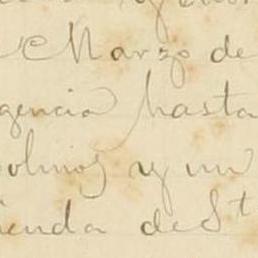 Marzo de
gencia hasta
olinos y un
ienda de St